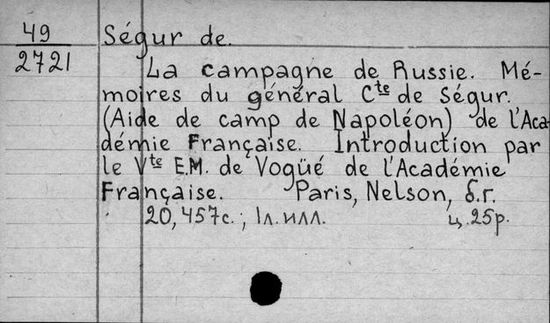 49
2721
Ségur de.
La campagne de Russie. Mé-
moires du général Cte de Ségur.
(Aide de camp de Napoléon) de l'Aca-
démie Française. Introduction par
le Vte E.M. de Vogüé de l'Académie
Française. Paris, Nelson, б.г.
20,457с.; 1л.илл. ц.25р.